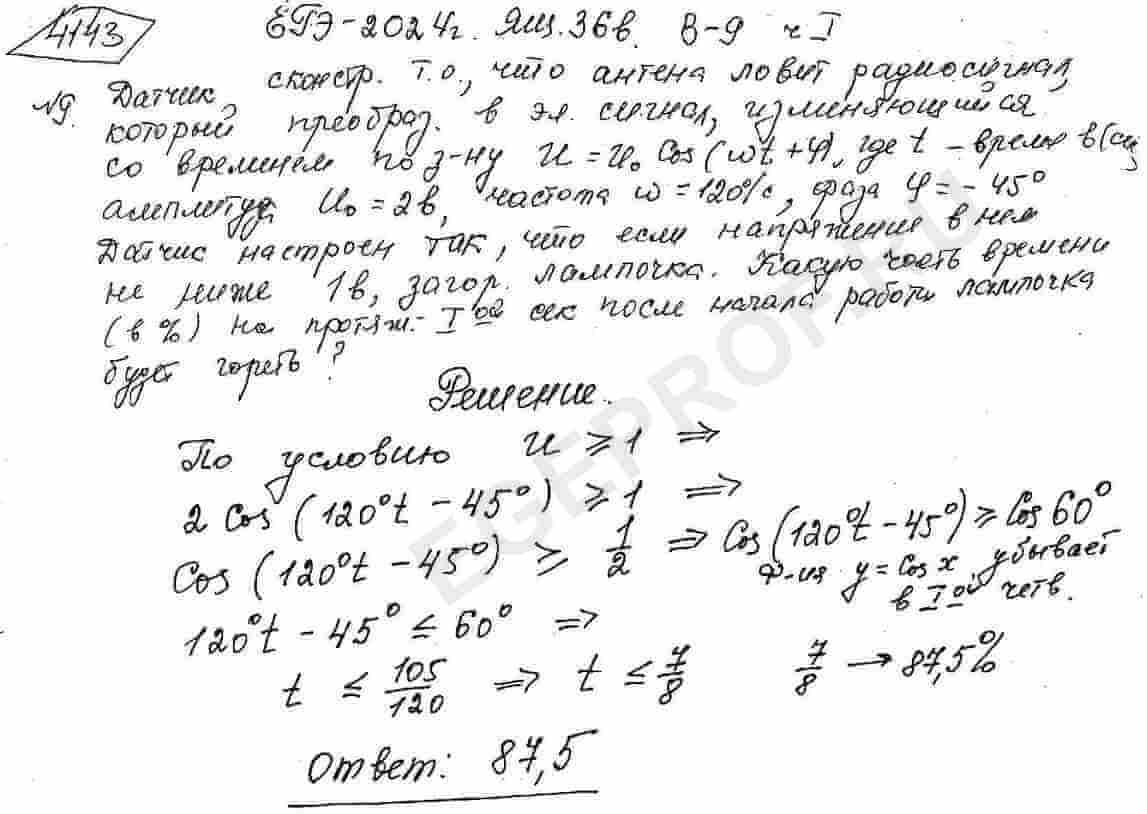 4143
ЕГЭ-2024г. Ящ. 36в. В-9 ч I
№9. Датчик, сконстр. т.о., что антена ловит радиосигнал,
который преобраз. в эл. сигнал, изменяющийся
со временем по з-ну U = U₀ Cos(ωt + φ), где t – время в (сек)
амплитуда U₀ = 2в, частота ω = 120°/с, фаза φ = - 45°
Датчик настроен так, что если напряжение в нем
не ниже 1в, загор. лампочка. Какую часть времени
(в %) на протяж. I ой сек после начала работы лампочка
будет гореть?
Решение.
По условию U ≥ 1 ⇒
2 Cos (120°t - 45°) ≥ 1 ⇒
Cos (120°t - 45°) ≥ 1/2 ⇒ Cos (120°t - 45°) ≥ Cos 60°
Ф-ия y = cos x убывает
в I ой четв.
120°t - 45° ≤ 60° ⇒
t ≤ 105/120 ⇒ t ≤ 7/8 7/8 → 87,5%
Ответ: 87,5
EGEPROFI.RU